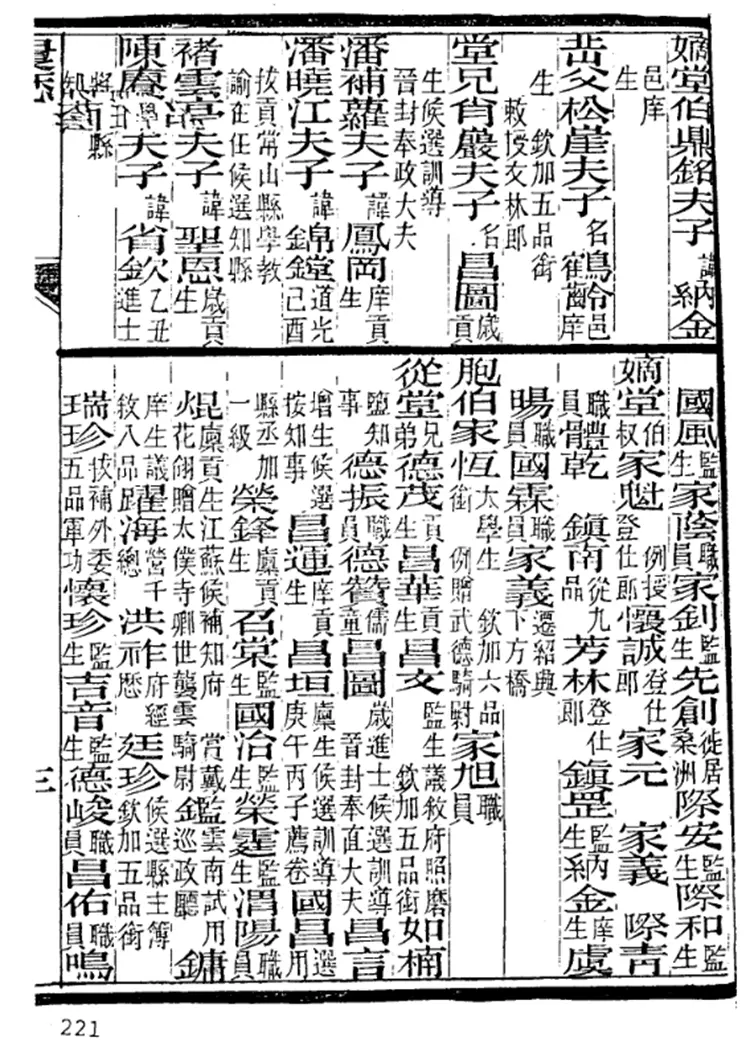 嫡堂伯鼎銘夫子 諱納金
邑庠
生
父松崖夫子 名 邑庠
生 欽加五品銜
敕授文林郎
堂兄肖巖夫子 名昌圖 歲貢
生候選訓導
晉封奉政大夫
潘補蘿夫子 諱鳳岡 庠貢生
潘曉江夫子 諱 道光己酉
拔貢常山縣學教
諭在任候選知縣
褚雲夫子 諱聖恩 歲貢生
陳夫子 諱省欽 乙丑進士
縣
國風監生家蔭職員家釗監生先創徙居桑洲際安監生際和監生
嫡堂伯叔家魁例授登仕郎懷誠登仕郎家元 家義 際青
職員體乾 鎮南從九品芳林登仕郎鎮罡監生納金庠生虞
暘職員國霖職員家義遷紹興下方橋
胞伯家恆太學生 欽加六品銜 例贈武德騎尉家旭職員
從堂兄弟德茂貢生昌華貢生昌文監生議敘府照磨 欽加五品銜如楠
鹽知事德振職員德贊儒童昌圖歲進士候選訓導 晉封奉直大夫昌言
增生候選按知事昌運庠貢生昌垣廩生候選訓導庚午丙子薦卷國昌選用
縣丞加一級榮鋒廩貢生召棠監生國治監生榮霆監生渭陽職員
焜廩貢生江蘇候補知府 賞戴花翎贈太僕寺卿世襲雲騎尉鑑雲南試用巡政廳鏞
庠生議敘八品躍海營千總洪祚府經歷廷珍候選縣主簿欽加五品銜
瑞珍拔補外委五品軍功懷珍監生吉音監生德峻職員昌佑職員鳴
三
221